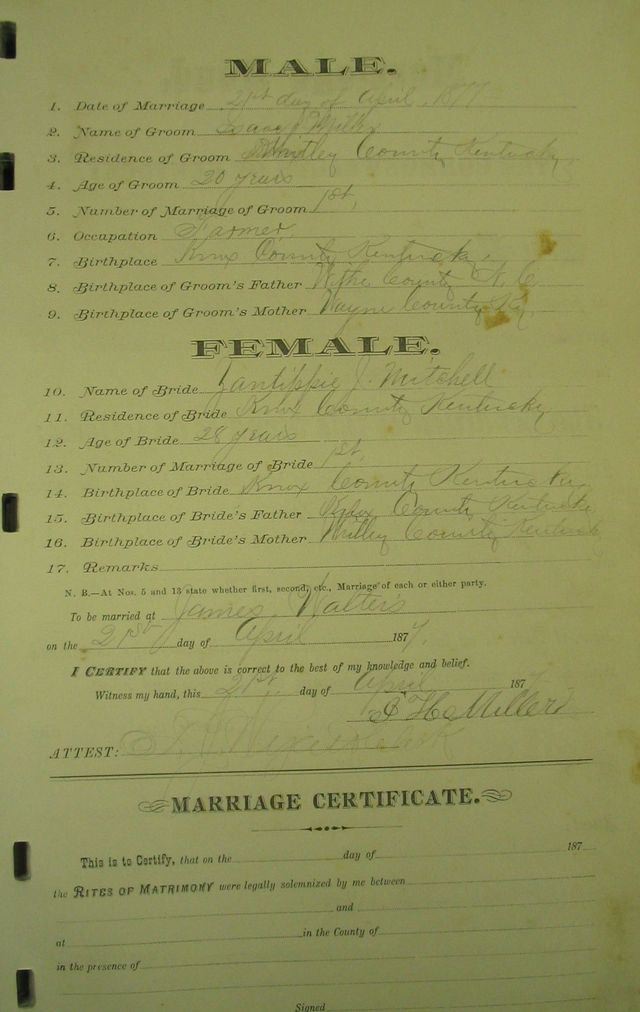 MALE.
1. Date of Marriage 21st day of April, 1877
2. Name of Groom Isaac Miller
3. Residence of Groom Whitley County Kentucky,
4. Age of Groom 20 years
5. Number of Marriage of Groom 1st,
6. Occupation Farmer,
7. Birthplace Knox County Kentucky.
8. Birthplace of Groom's Father County N.C.
9. Birthplace of Groom's Mother Wayne County Ky,
FEMALE.
10. Name of Bride J. Mitchell
11. Residence of Bride Knox County Kentucky
12. Age of Bride 28 years
13. Number of Marriage of Bride 1st,
14. Birthplace of Bride Knox County Kentucky
15. Birthplace of Bride's Father Knox County Kentucky
16. Birthplace of Bride's Mother Whitley County Kentucky
17. Remarks
N. B.—At Nos. 5 and 13 state whether first, second, etc., Marriage of each or either party.
To be married at James Walters
on the 21st day of April 1877,
I CERTIFY that the above is correct to the best of my knowledge and belief.
Witness my hand, this 21st. day of April 187
Miller
ATTEST:
MARRIAGE CERTIFICATE.
This is to Certify, that on the day of 187
the RITES OF MATRIMONY were legally solemnized by me between
and
at in the County of
in the presence of
Signed